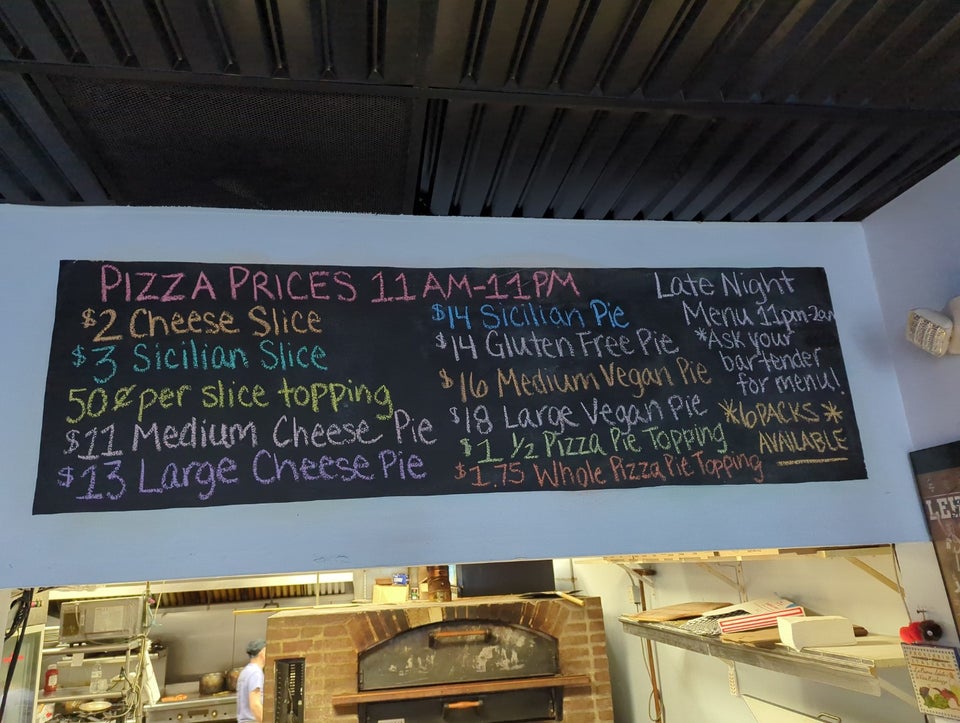 PIZZA PRICES 11AM-11PM
$2 Cheese Slice
$3 Sicilian Slice
50¢ per slice topping
$11 Medium Cheese Pie
$13 Large Cheese Pie
$14 Sicilian Pie
$14 Gluten Free Pie
$16 Medium Vegan Pie
$18 Large Vegan Pie
$1 ½ Pizza Pie Topping
$1.75 Whole Pizza Pie Topping
Late Night
Menu 11pm-2am
*Ask your
bartender
for menu!
*6 PACKS*
AVAILABLE